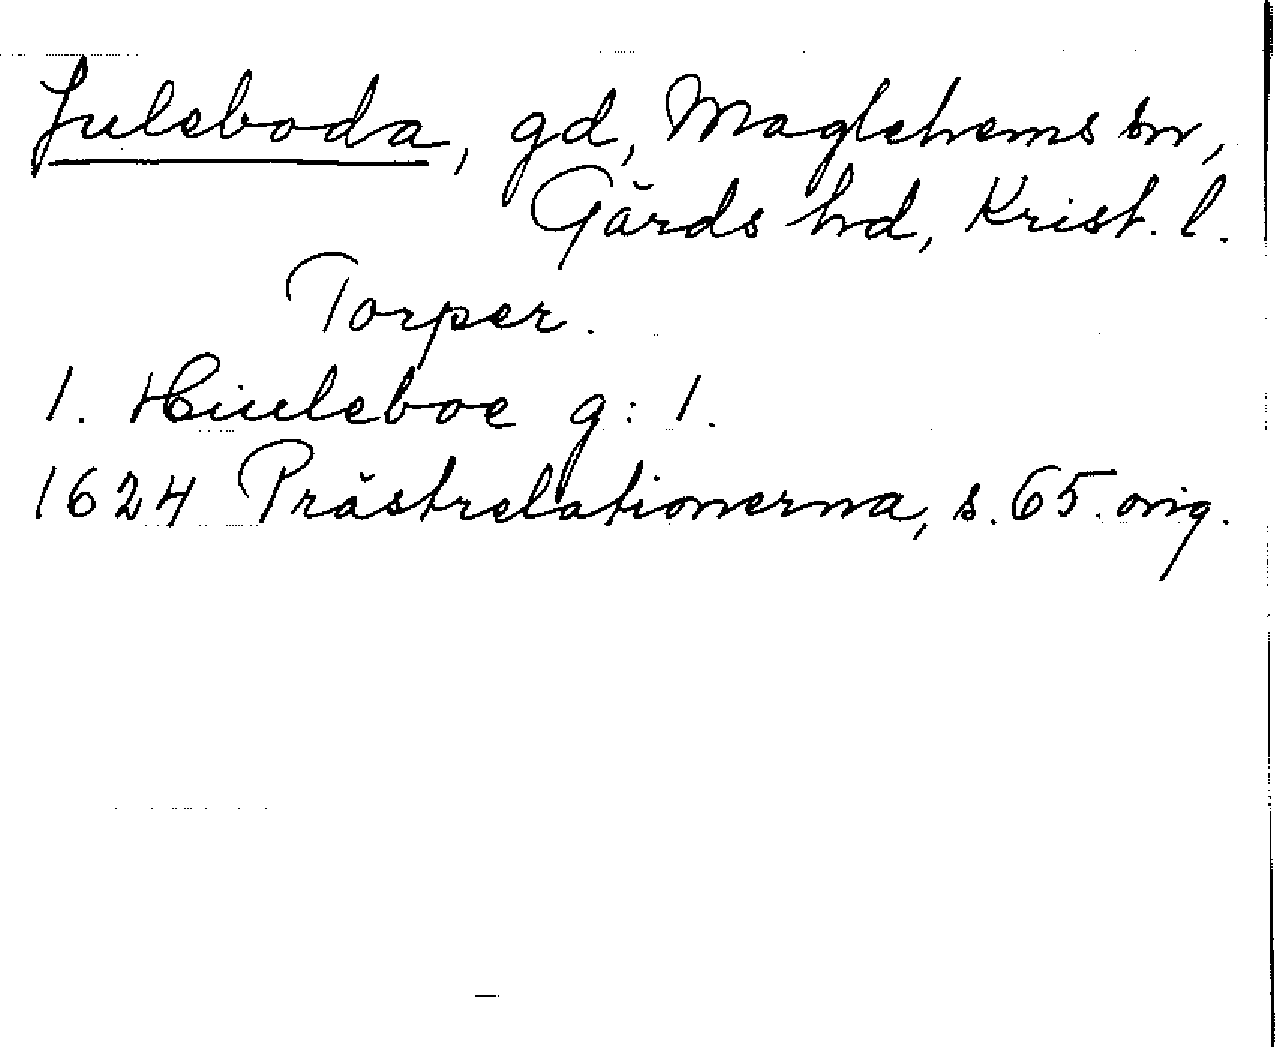 Juleboda, gd, Maglehems sn,
Gärds hrd, Krist. l.
Torper.
1. Hiuleboe g: 1.
1624 Prästrelationerna, s. 65. orig.